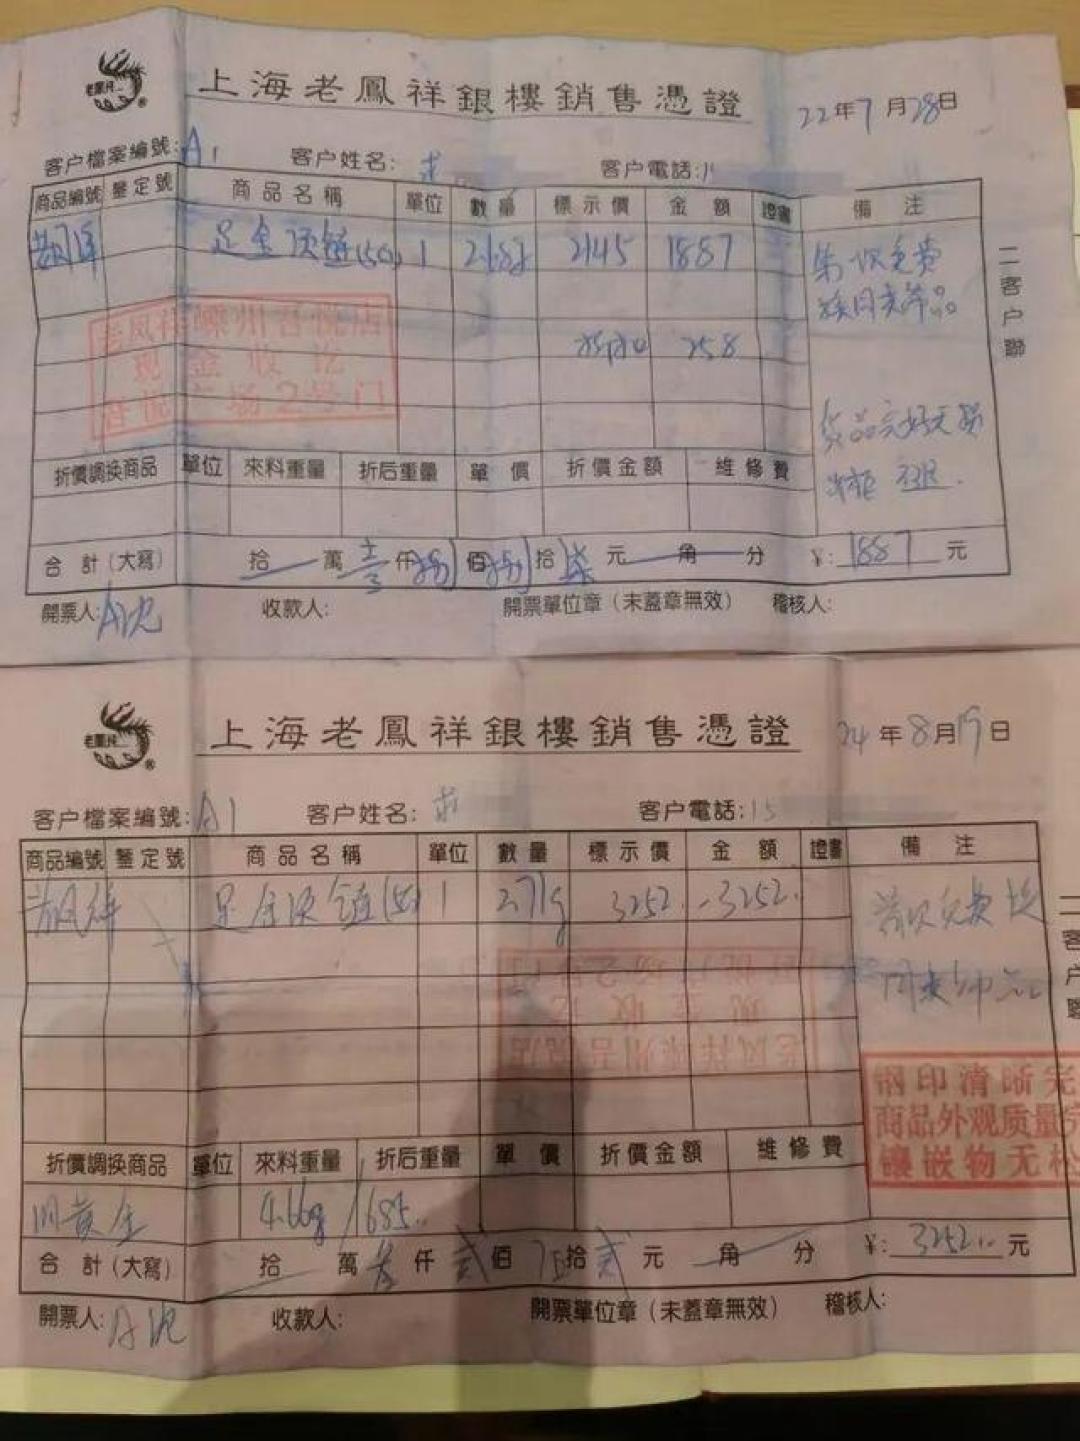 老鳳祥 ®
上海老鳳祥銀樓銷售憑證
22年7月28日
客户檔案編號: A1 客户姓名: 客户電話: 1
商品編號 鑒定號 商品名稱 單位 數量 標示價 金額 證書 備注
老凤祥 足金项链(5G) 1 2.68g 2145 1887 第一次免费
换同类饰品
258
老凤祥嵊州吾悦店
现金收讫
吾悦广场2号门
货品完好无损
二客户聯
折價調换商品 單位 來料重量 折后重量 單價 折價金額 維修費
合計(大寫) 拾 萬 壹 仟 捌 佰 捌 拾 柒 元 角 分 ¥: 1887 元
開票人: A沈 收款人: 開票單位章(未蓋章無效) 稽核人:
老鳳祥 ®
上海老鳳祥銀樓銷售憑證
24年8月19日
客户檔案編號: A1 客户姓名: 客户電話: 15
商品編號 鑒定號 商品名稱 單位 數量 標示價 金額 證書 備注
老凤祥 足金项链(5G) 1 2.71g 3252 3252 首次免费换
同类饰品
二客户聯
老凤祥嵊州吾悦店
现金收讫
钢印清晰完
商品外观质量完
镶嵌物无松
折價調换商品 單位 來料重量 折后重量 單價 折價金額 維修費
旧黄金 4.66g 1685
合計(大寫) 拾 萬 叁 仟 贰 佰 伍 拾 贰 元 角 分 ¥: 3252 元
開票人: A沈 收款人: 開票單位章(未蓋章無效) 稽核人: